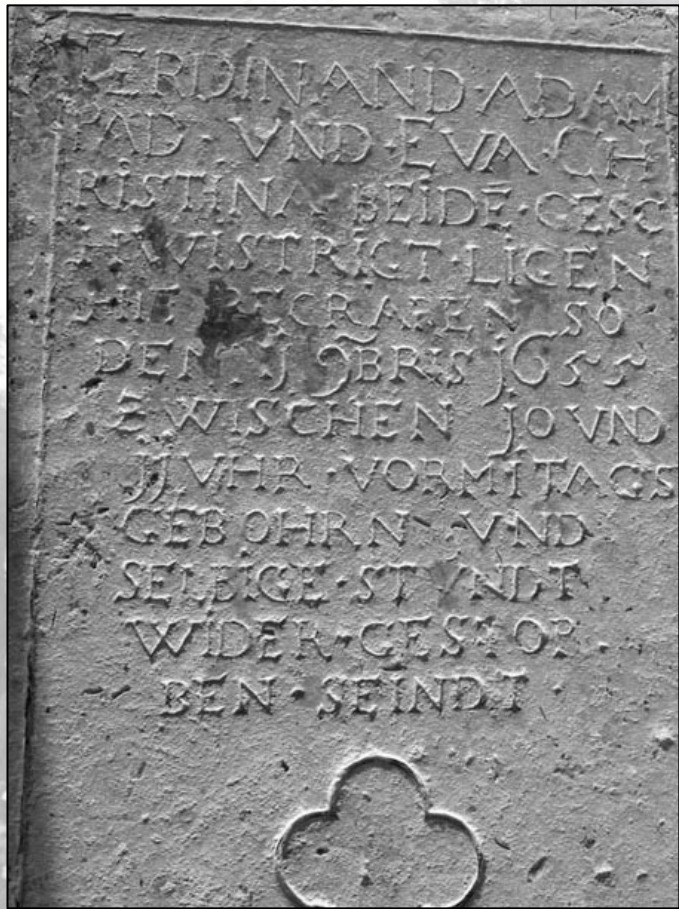 FERDINAND · ADAM
PAD · VND · EVA · CH
RISTINA · BEIDE · GESC
HWISTRIGT · LIGEN
HIE BEGRABEN SO
DEN 9BRIS j655
ZWISCHEN jO VND
jj VHR · VORMITAGS
GEBOHRN VND
SELBIGE · STVNDT
WIDER · GESTOR
BEN · SEINDT